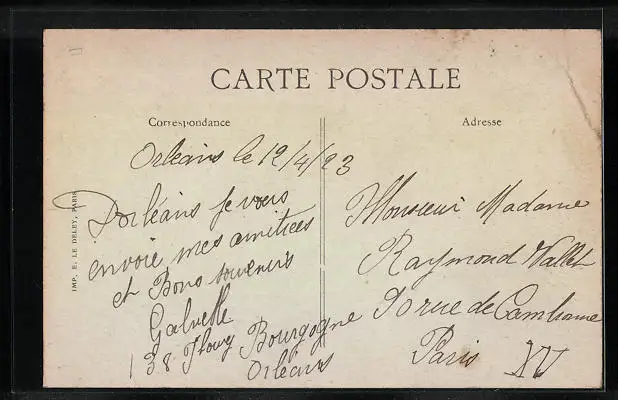 CARTE POSTALE
Correspondance
Adresse
Orléans le 12/4/23
D'orléans je vous
envoie mes amitiées
et Bons souvenirs
138 Bourgogne
Orléans
Monsieur Madame
Raymond Vallet
rue de Cambrone
Paris XV
IMP. E. LE DELEY, PARIS